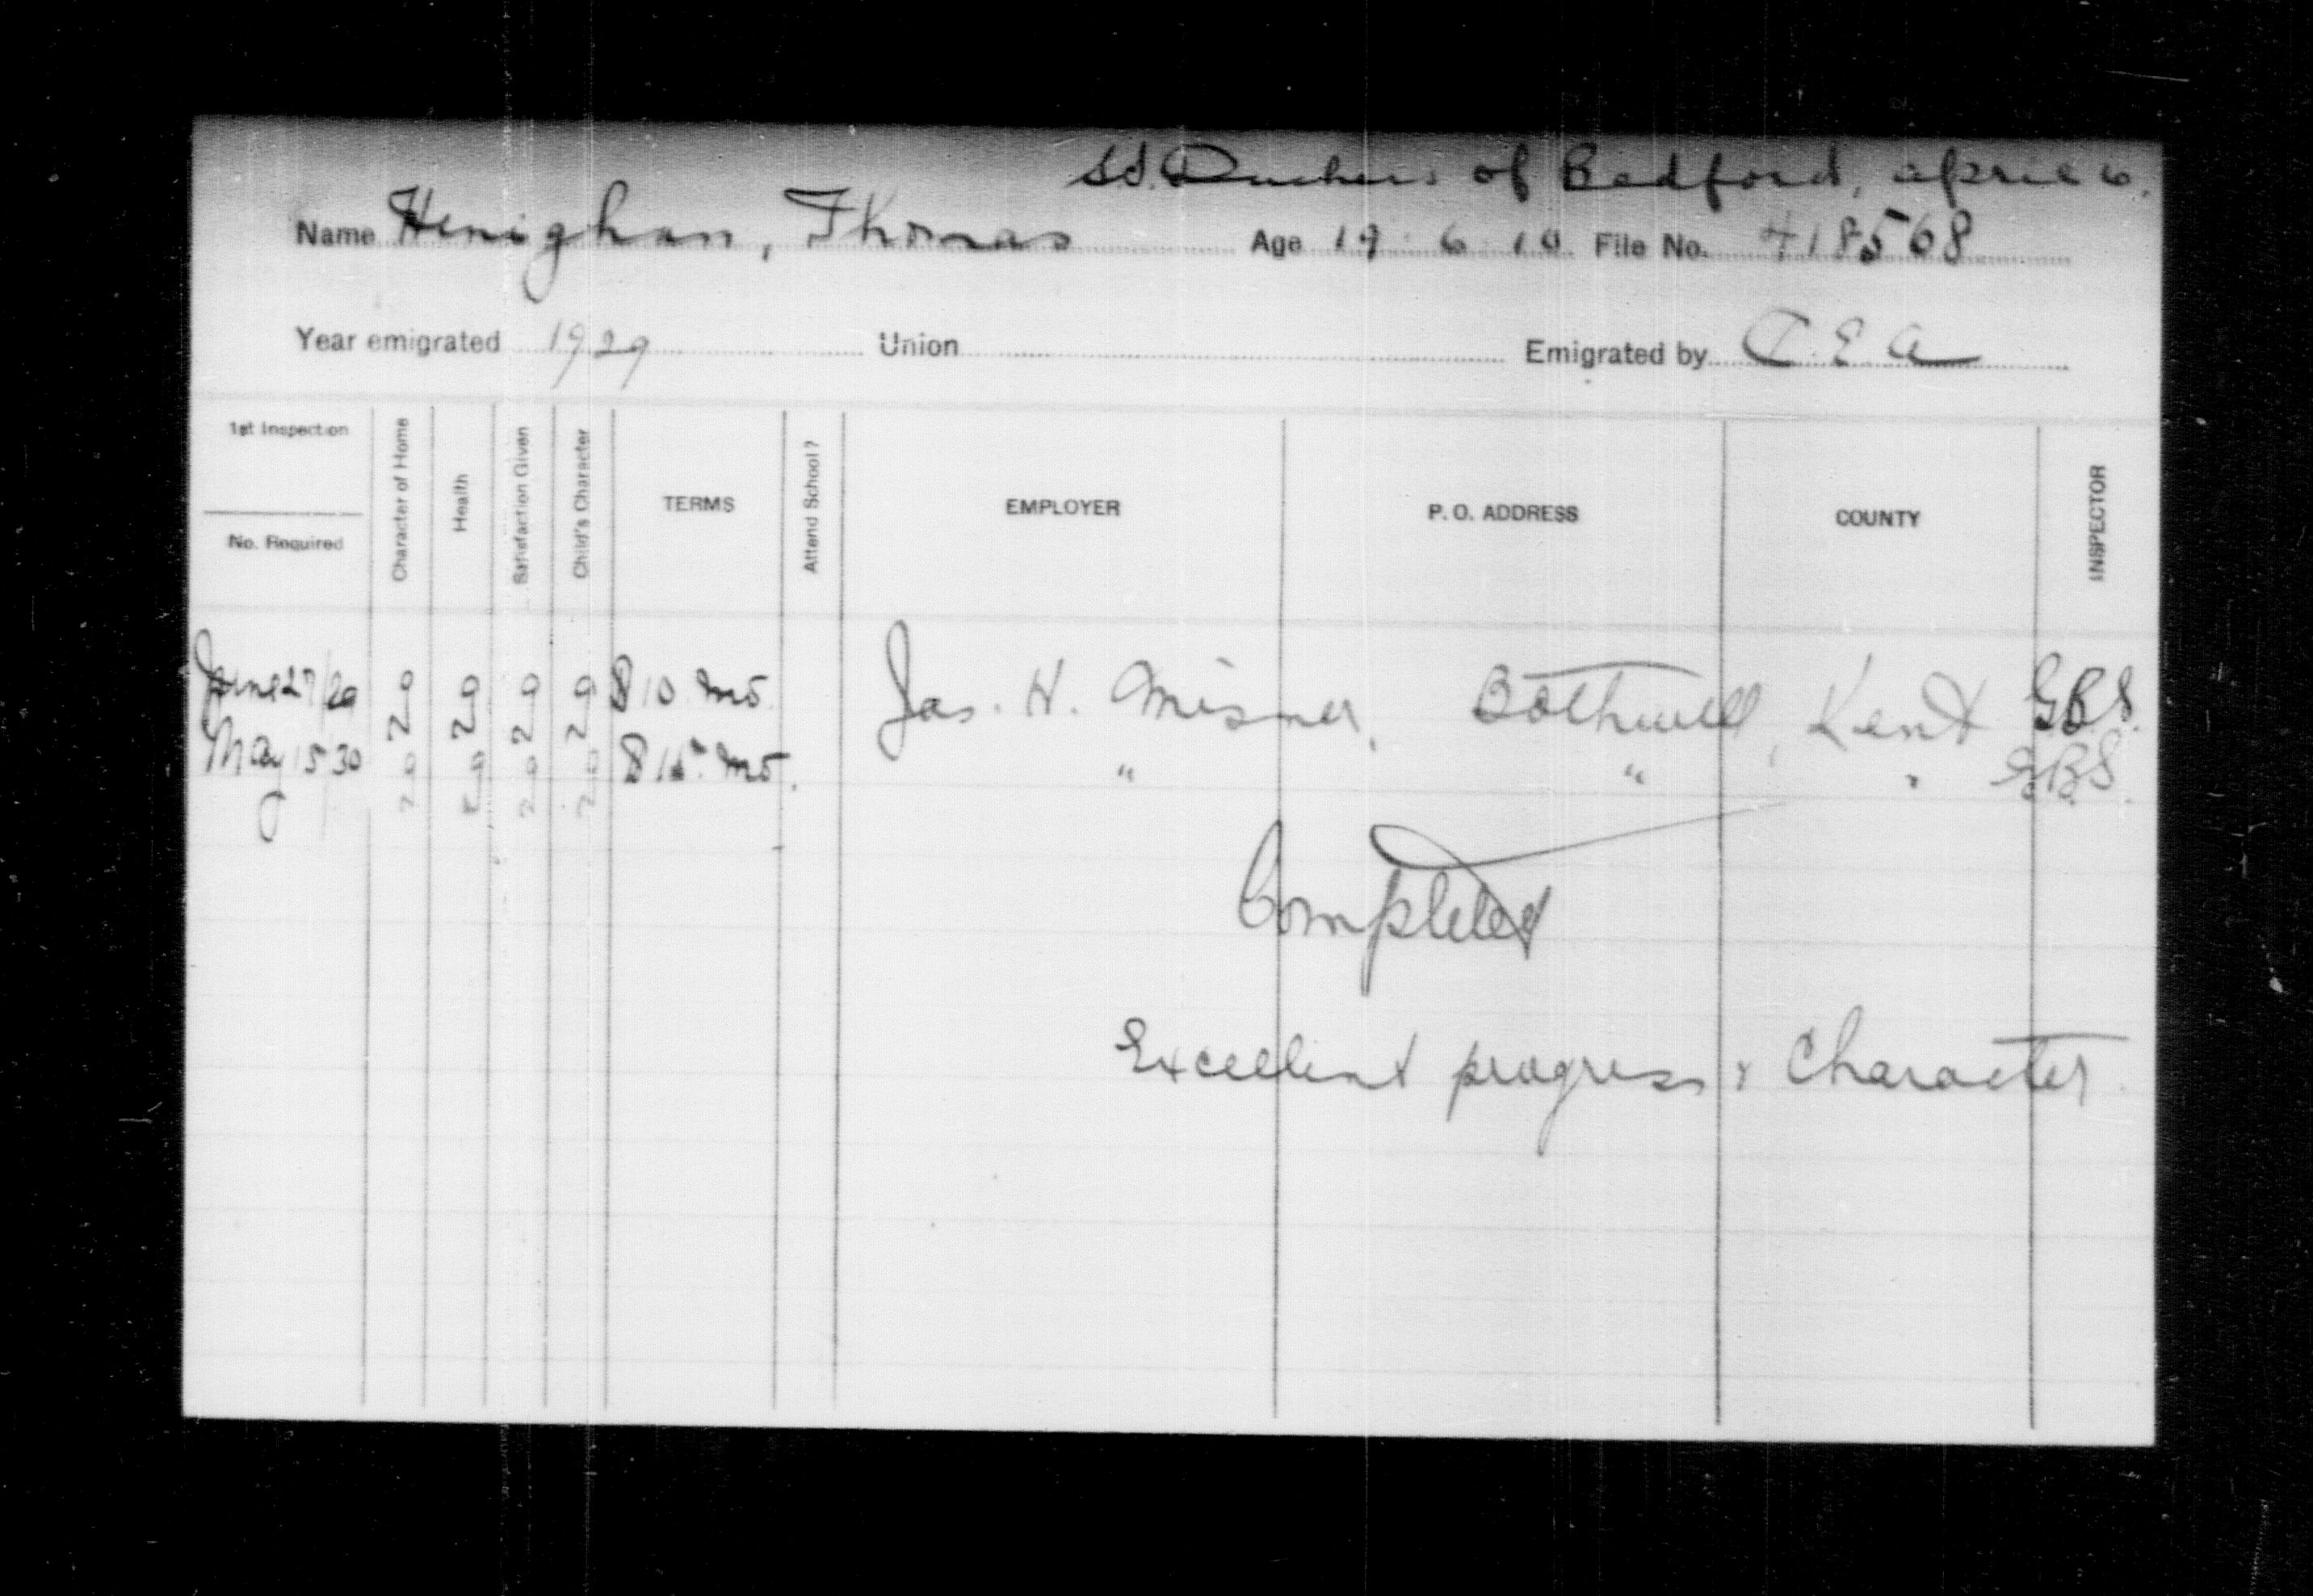 SS. Duchess of Bedford, april 6.
Name Henighan, Thomas Age 19 6 10 File No. 418568
Year emigrated 1929 Union Emigrated by C E A
1st Inspection
No. Required
Character of Home
Health
Satisfaction Given
Child's Character
TERMS
Attend School?
EMPLOYER
P. O. ADDRESS
COUNTY
INSPECTOR
June 27/29 g g g g $10 mo. Jas. H. Misner, Bothwell, Kent GBS.
May 15 30 $15 mo. " " " GBS.
Completed
Excellent progress & Character